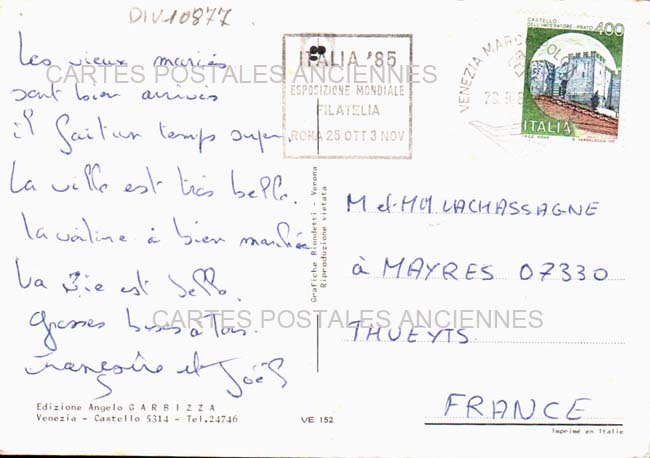 DIV10877
Les vieux mariés
sont bien arrivés
il fait un temps super.
La ville est très belle.
La voiture à bien marchée
La Vie est belle.
Grosses bises à Tous.
Françoise et Joël
CARTES POSTALES ANCIENNES
CARTES POSTALES ANCIENNES
Edizione Angelo GARBIZZA
Venezia - Castello 5314 - Tel.24746
VE 152
Grafiche Biondetti - Verona
Riproduzione vietata
ITALIA '85
ESPOSIZIONE MONDIALE
FILATELIA
ROMA 25 OTT 3 NOV
VENEZIA
CASTELLO
DELL'IMPERATORE - PRATO
400
ITALIA
M et Mme LACHASSAGNE
à MAYRES 07330
THUEYTS.
FRANCE
Imprimé en Italie